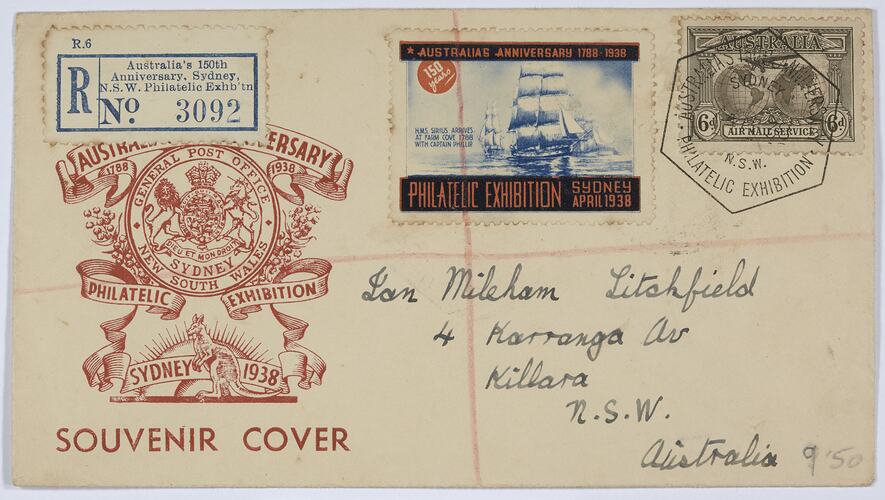 R.6
R
Australia's 150th
Anniversary, Sydney,
N.S.W. Philatelic Exhb'tn
No 3092
★ AUSTRALIA'S ANNIVERSARY 1788-1938 ★
150
years
H.M.S. SIRIUS ARRIVES
AT FARM COVE 1788
WITH CAPTAIN PHILLIP
PHILATELIC EXHIBITION SYDNEY
APRIL 1938
AUSTRALIA
6d AIR MAIL SERVICE 6d
SYDNEY
N.S.W.
PHILATELIC EXHIBITION
1788 1938
GENERAL POST OFFICE
DIEU ET MON DROIT
SYDNEY
NEW SOUTH WALES
PHILATELIC EXHIBITION
SYDNEY 1938
SOUVENIR COVER
Ian Mileham Litchfield
4 Karranga Av
Killara
N.S.W.
Australia
9'50